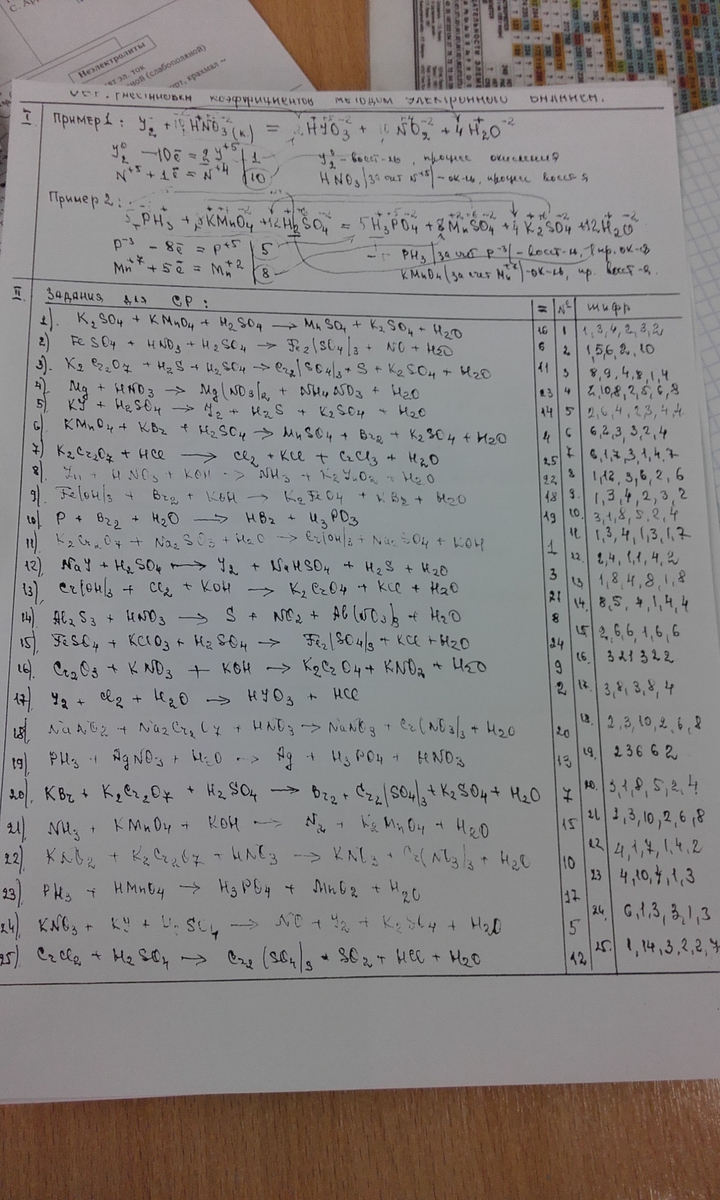 С. Ар
Неэлектролиты
ет эл. ток
ной (слабополяной)
орт, крахмал ~
коэффициентов методом электронного баланса.
I Пример 1: У₂ + 10HNO₃(к) = 2HYO₃ + 10NO₂ + 4H₂O
У₂⁰ − 10ē = 2У⁺⁵ | 1 У₂⁰ – восст-ль, процесс окисления
N⁺⁵ + 1ē = N⁺⁴ | 10 HNO₃ /за счет N⁺⁵/ – ок-ль, процесс восст-я
Пример 2:
5PH₃ + 8KMnO₄ + 12H₂SO₄ = 5H₃PO₄ + 8MnSO₄ + 4K₂SO₄ + 12H₂O
P⁻³ − 8ē = P⁺⁵ | 5 PH₃ /за счет P⁻³/ – восст-ль, пр. ок-я
Mn⁺⁷ + 5ē = Mn⁺² | 8 KMnO₄ /за счет Mn⁺⁷/ – ок-ль, пр. восст-я.
II. Задания для СР: = № шифр
1). K₂SO₄ + KMnO₄ + H₂SO₄ → MnSO₄ + K₂SO₄ + H₂O 16 1 1,3,4,2,3,2
2) FeSO₄ + HNO₃ + H₂SO₄ → Fe₂(SO₄)₃ + NO + H₂O 6 2 1,5,6,2,10
3). K₂Cr₂O₇ + H₂S + H₂SO₄ → Cr₂(SO₄)₃ + S + K₂SO₄ + H₂O 11 3 8,9,4,8,1,4
4). Mg + HNO₃ → Mg(NO₃)₂ + NH₄NO₃ + H₂O 23 4 2,10,8,2,5,6,8
5) KУ + H₂SO₄ → У₂ + H₂S + K₂SO₄ + H₂O 14 5 2,6,4,2,3,4,4
6) KMnO₄ + KBr + H₂SO₄ → MnSO₄ + Br₂ + K₂SO₄ + H₂O 4 6 6,2,3,3,2,4
7) K₂Cr₂O₇ + HCl → Cl₂ + KCl + CrCl₃ + H₂O 25 7 6,1,7,3,1,4,7
8) + HNO₃ + KOH → NH₃ + + H₂O 22 8 1,12,3,6,2,6
9) Fe(OH)₃ + Br₂ + KOH → K₂FeO₄ + KBr + H₂O 18 9. 1,3,4,2,3,2
10) P + Br₂ + H₂O → HBr + H₃PO₃ 19 10. 3,1,8,5,2,4
11) K₂Cr₂O₇ + Na₂SO₃ + H₂O → Cr(OH)₃ + Na₂SO₄ + KOH 1 11 1,3,4,1,3,1,7
12) NaУ + H₂SO₄ → У₂ + NaHSO₄ + H₂S + H₂O 3 12. 2,4,1,1,4,2
13) Cr(OH)₃ + Cl₂ + KOH → K₂CrO₄ + KCl + H₂O 21 13 1,8,4,8,1,8
14) Al₂S₃ + HNO₃ → S + NO₂ + Al(NO₃)₃ + H₂O 8 14. 8,5,4,1,4,4
15) FeSO₄ + KClO₃ + H₂SO₄ → Fe₂(SO₄)₃ + KCl + H₂O 24 15 2,6,6,1,6,6
16) Cr₂O₃ + KNO₃ + KOH → K₂CrO₄ + KNO₂ + H₂O 9 16. 3 2 1 3 2 2
17) У₂ + Cl₂ + H₂O → HУO₃ + HCl 2 17. 3,8,3,8,4
18) NaNO₂ + Na₂Cr₂O₇ + HNO₃ → NaNO₃ + Cr(NO₃)₃ + H₂O 20 18. 2,3,10,2,6,8
19) PH₃ + AgNO₃ + H₂O → Ag + H₃PO₄ + HNO₃ 13 19. 2 3 6 6 2
20) KBr + K₂Cr₂O₇ + H₂SO₄ → Br₂ + Cr₂(SO₄)₃ + K₂SO₄ + H₂O 7 20. 3,1,8,5,2,4
21) NH₃ + KMnO₄ + KOH → N₂ + K₂MnO₄ + H₂O 15 21 1,3,10,2,6,8
22) KNO₂ + K₂Cr₂O₇ + HNO₃ → KNO₃ + Cr(NO₃)₃ + H₂O 10 22 4,1,7,1,4,2
23) PH₃ + HMnO₄ → H₃PO₄ + MnO₂ + H₂O 17 23 4,10,7,1,3
24) KNO₃ + KУ + H₂SO₄ → NO + У₂ + K₂SO₄ + H₂O 5 24. 6,1,3,3,1,3
25) CrCl₂ + H₂SO₄ → Cr₂(SO₄)₃ + SO₂ + HCl + H₂O 12 25. 1,14,3,2,2,7